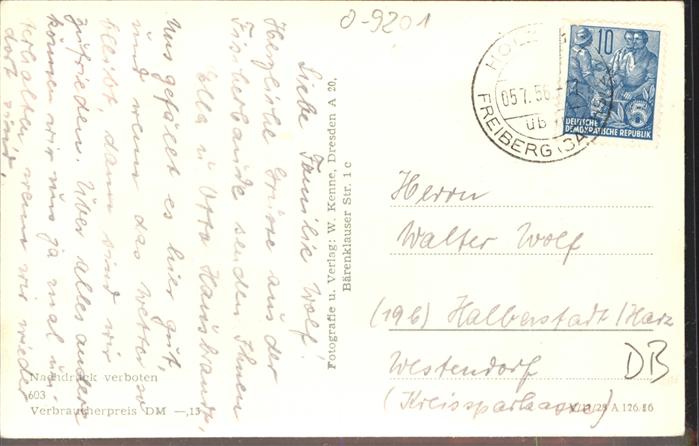 0-9201
Liebe Familie Wolf!
Herzliche Grüße aus der
Fischerbaude senden Ihnen
Ella u. Otto
Uns gefällt es hier gut,
und wenn das Wetter so
bleibt, dann sind wir
zufrieden. Über alles andere
können wir uns ja mal un-
terhalten, wenn wir wieder
dort sind.
Fotografie u. Verlag: W. Kenne, Dresden A 20,
Bärenklauser Str. 1 c
Nachdruck verboten
603
Verbraucherpreis DM —,15
10
DEUTSCHE
DEMOKRATISCHE REPUBLIK
5
HOLZ
05.7.56
ub
FREIBERG (SA
Herrn
Walter Wolf
(19b) Halberstadt/Harz
Westendorf
(Kreissparkasse)
DB
A 126/56